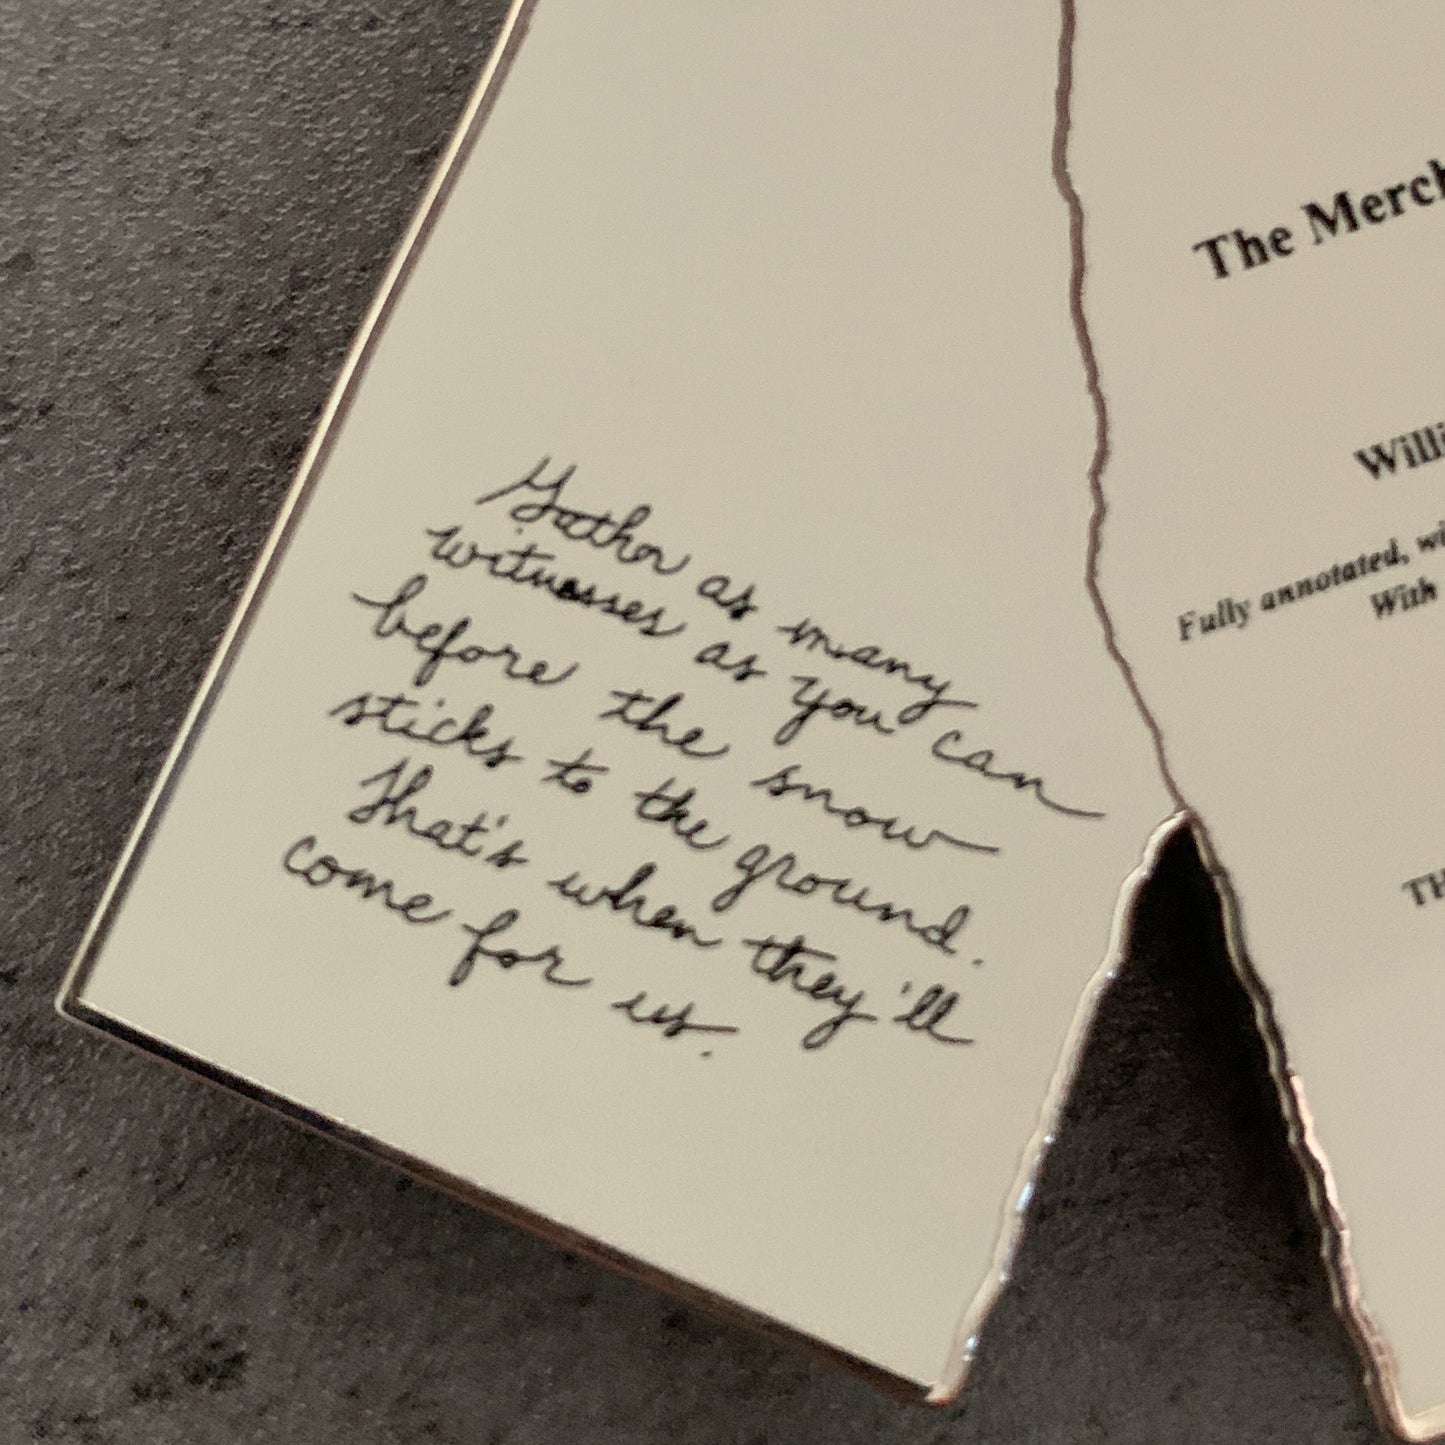 Gather as many
witnesses as you can
before the snow
sticks to the ground.
That's when they'll
come for us.
The Merch
Willi
Fully annotated, wi
With
TH